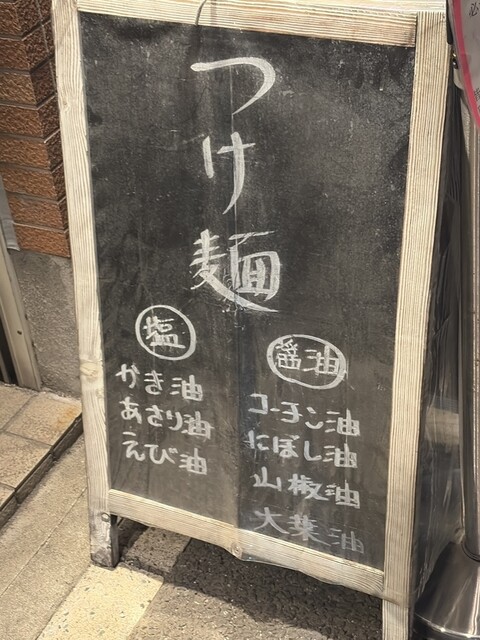 つけ麺
塩
かき油
あさり油
えび油
醤油
コーチン油
にぼし油
山椒油
大葉油